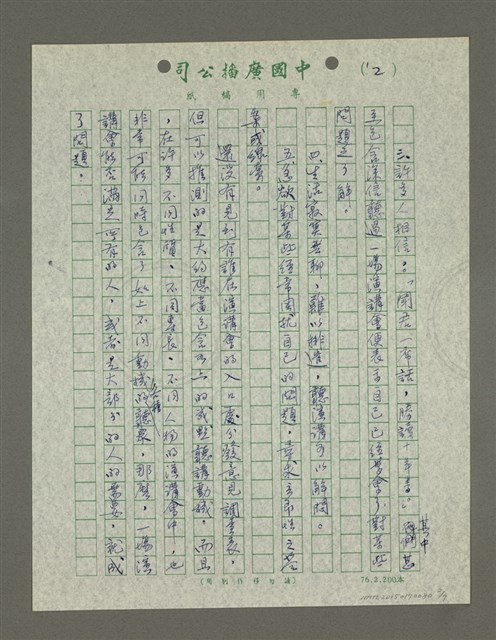 中國廣播公司
專用編紙
(12)
三、許多人相信。「聞君一席話,勝讀十年書。」其中甚
至包含深信聽過一場演講會便表示自己已經學會了對某些
問題之了解。
四、生活寂寞無聊,難以排遣,聽演講可以解悶。
五、急欲對某些經常困擾自己的問題,尋求立即性之答
案或線索。
還沒有見到有誰在演講會的入口處分發意見調查表,
但可以推測的是大約總會包含以上的或點聽講動機。而且
,在許多不同性質、不同專長、不同人物的演講會中,也
非常可能同時包含了如上不同動機的聽眾,那麼,一場演
講會能否滿足所有的人,或者是大部分的人的需要,就成
了問題。
76.2.200本